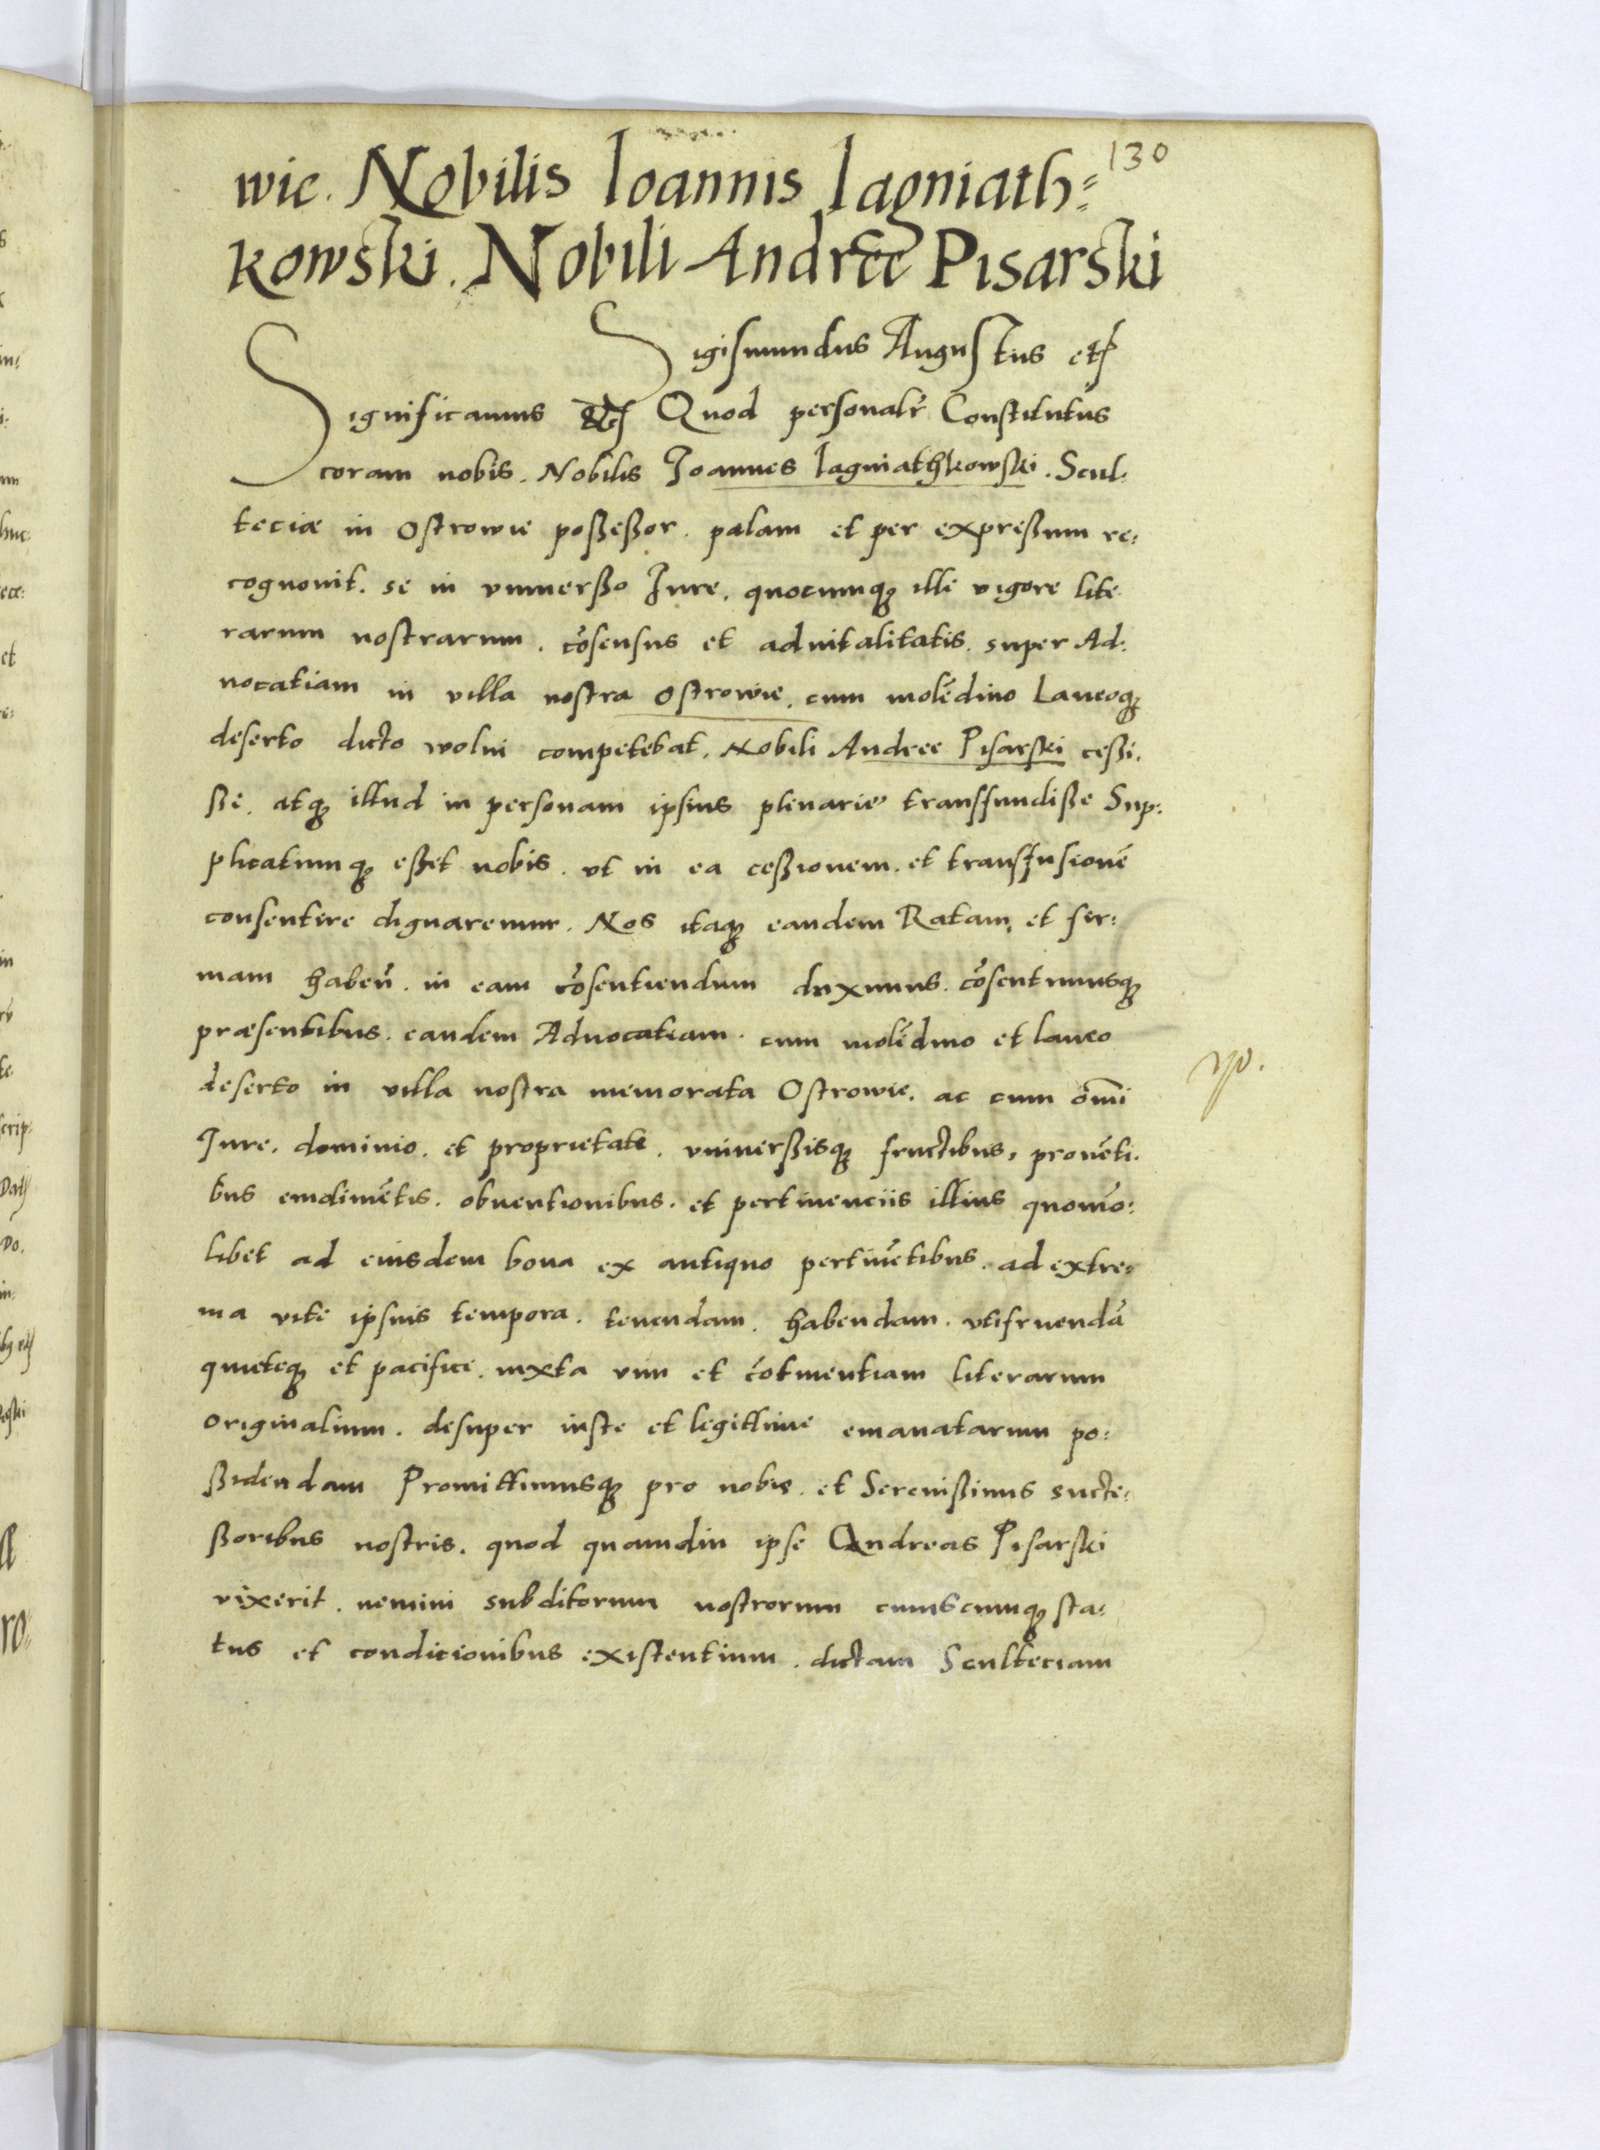 130
wie. Nobilis Ioannis Iagniath=
kowski. Nobili Andreę Pisarski
Sigismundus Augustus etc
Significamus etc Quod personalr̃ Constitutus
coram nobis. Nobilis Joannes Iagniathkowski. Scul:
teciæ in Ostrowie poßeßor. palam et per expreßum re:
cognovit. se in vniuerßo Jure. quocunqȝ ille vigore lite
rarum nostrarum. cõsensus et aduitalitatis. super Ad:
uocatiam in villa nostra Ostrowie. cum molẽdino Laneoqȝ
deserto dicto wolni competebat. Nobili Andree Pisarski ceßi.
ße. atqȝ illud in personam ipsius plenarie transfundiße Sup:
plicatumqȝ eßet nobis. vt in ea ceßionem. et transfusionẽ
consentire dignaremur. Nos itaqȝ eandem Ratam et fir:
mam habeñ. in eam cõsentiendum duximus. cõsentimusqȝ
præsentibus. eandem Aduocatiam. cum molẽdino et laneo
deserto in villa nostra memorata Ostrowie. ac cum om̃i
Jure. dominio. et proprietate. vniuerßisqȝ fructibus, prouẽti.
bus emolimẽtis. obuentionibus. et pertinenciis illius quomõ:
libet ad eiusdem bona ex antiquo pertinẽtibus. ad extre:
ma vite ipsius tempora. tenendam. habendam. vtifruendã
quieteqȝ et pacifice. iuxta vim et cõtinentiam literarum
originalium. desuper iuste et legittime emanatarum po:
ßidendam Promittimusqȝ pro nobis. et Serenißimis succe:
ßoribus nostris. quod quamdiu ipse Andreas Pisarski
vixerit. nemini subditorum nostrorum cuiuscunqȝ sta:
tus et condicionibus existentium. dictam Sculteciam